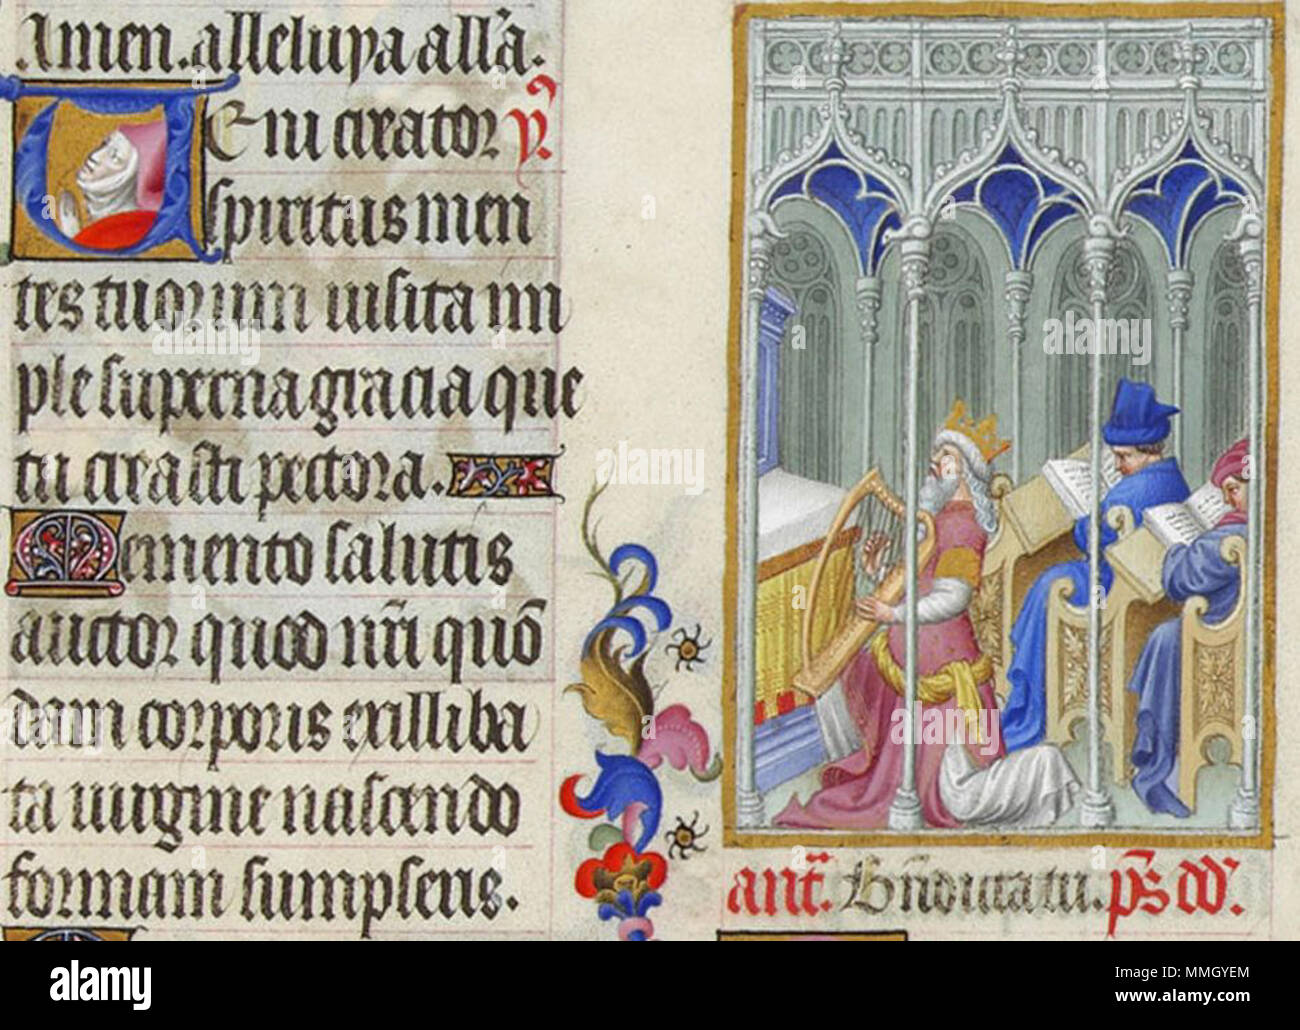 Amen. alleluya all'a.
Veni creator ℣.
spiritus men
tes tuorum visita im
ple superna gracia que
tu creasti pectora.
Memento salutis
auctor quod nr̃i quõ
dam corporis exilliba
ta virgine nascendo
formam sumpseris.
ant̃. Bñdicta tu. p̃s dd̃.
alamy
alamy
Image ID: MMGYEM
www.alamy.com